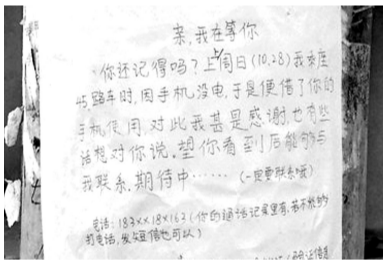 亲,我在等你
你还记得吗?上周日(10.28)我乘座
45路车时,因手机没电,于是便借了你的
手机使用,对此我甚是感谢,也有些
话想对你说。望你看到后能够与
我联系,期待中……(一定要联系哦)
电话:183××18×163(你的通话记录里有,若不能够
打电话,发短信也可以)